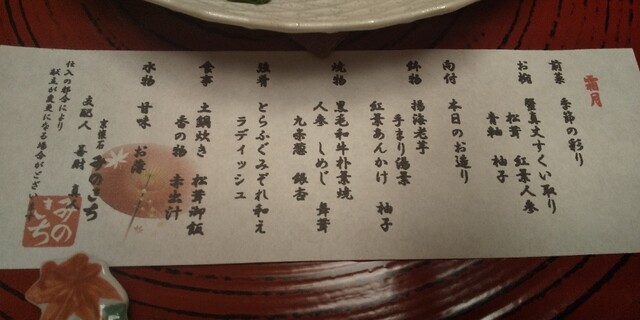 霜月
前菜 季節の彩り
お椀 蟹真丈すくい取り
松茸 紅葉人参
青軸 柚子
向付 本日のお造り
鉢物 揚海老芋
手まり湯葉
紅葉あんかけ 柚子
焼物 黒毛和牛朴葉焼
人参 しめじ 舞茸
九条葱 銀杏
強肴 とらふぐみぞれ和え
ラディッシュ
食事 土鍋炊き 松茸御飯
香の物 赤出汁
水物 甘味 お薄
京懐石 みのきち
支配人 真人
仕入の都合により
献立が変更になる場合がございます
みのきち